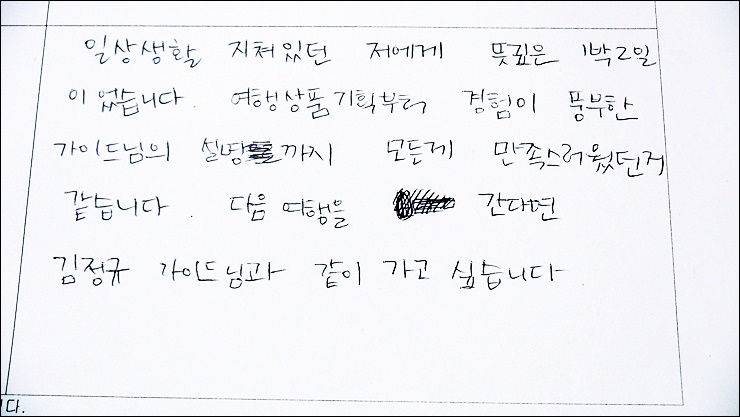 일상생활 지쳐있던 저에게 뜻깊은 1박2일
이었습니다. 여행상품기획부터 경험이 풍부한
가이드님의 설명까지 모든게 만족스러웠던거
같습니다. 다음 여행을 간다면
김정규 가이드님과 같이 가고 싶습니다
다.